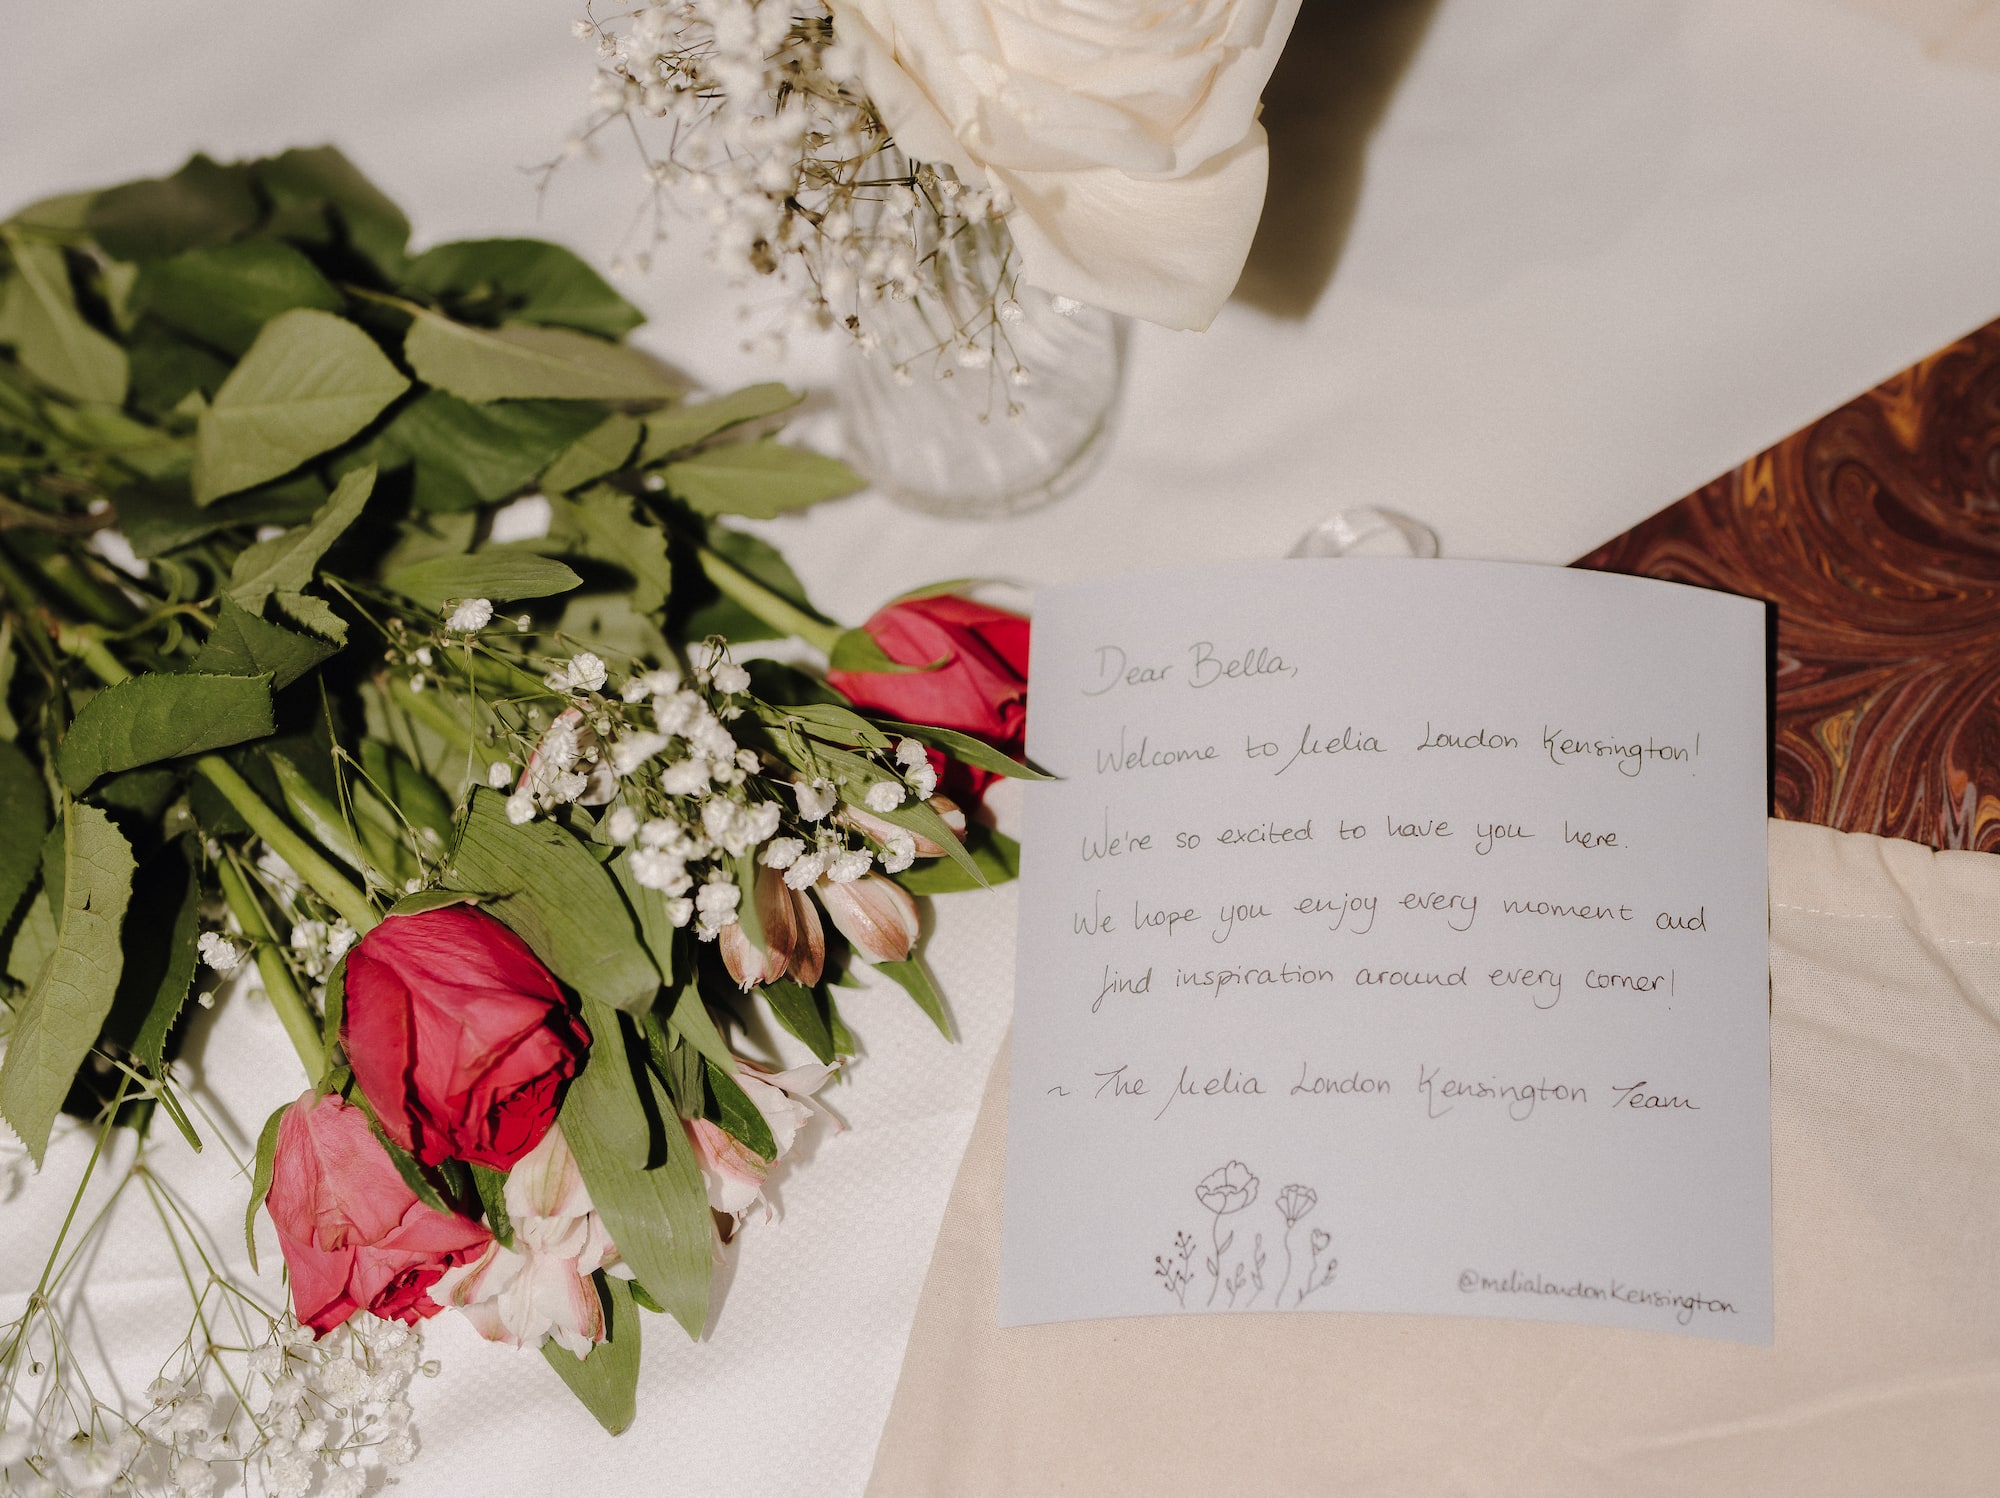 Dear Bella,
Welcome to Melia London Kensington!
We're so excited to have you here.
We hope you enjoy every moment and
find inspiration around every corner!
~ The Melia London Kensington Team
@melialondonkensington